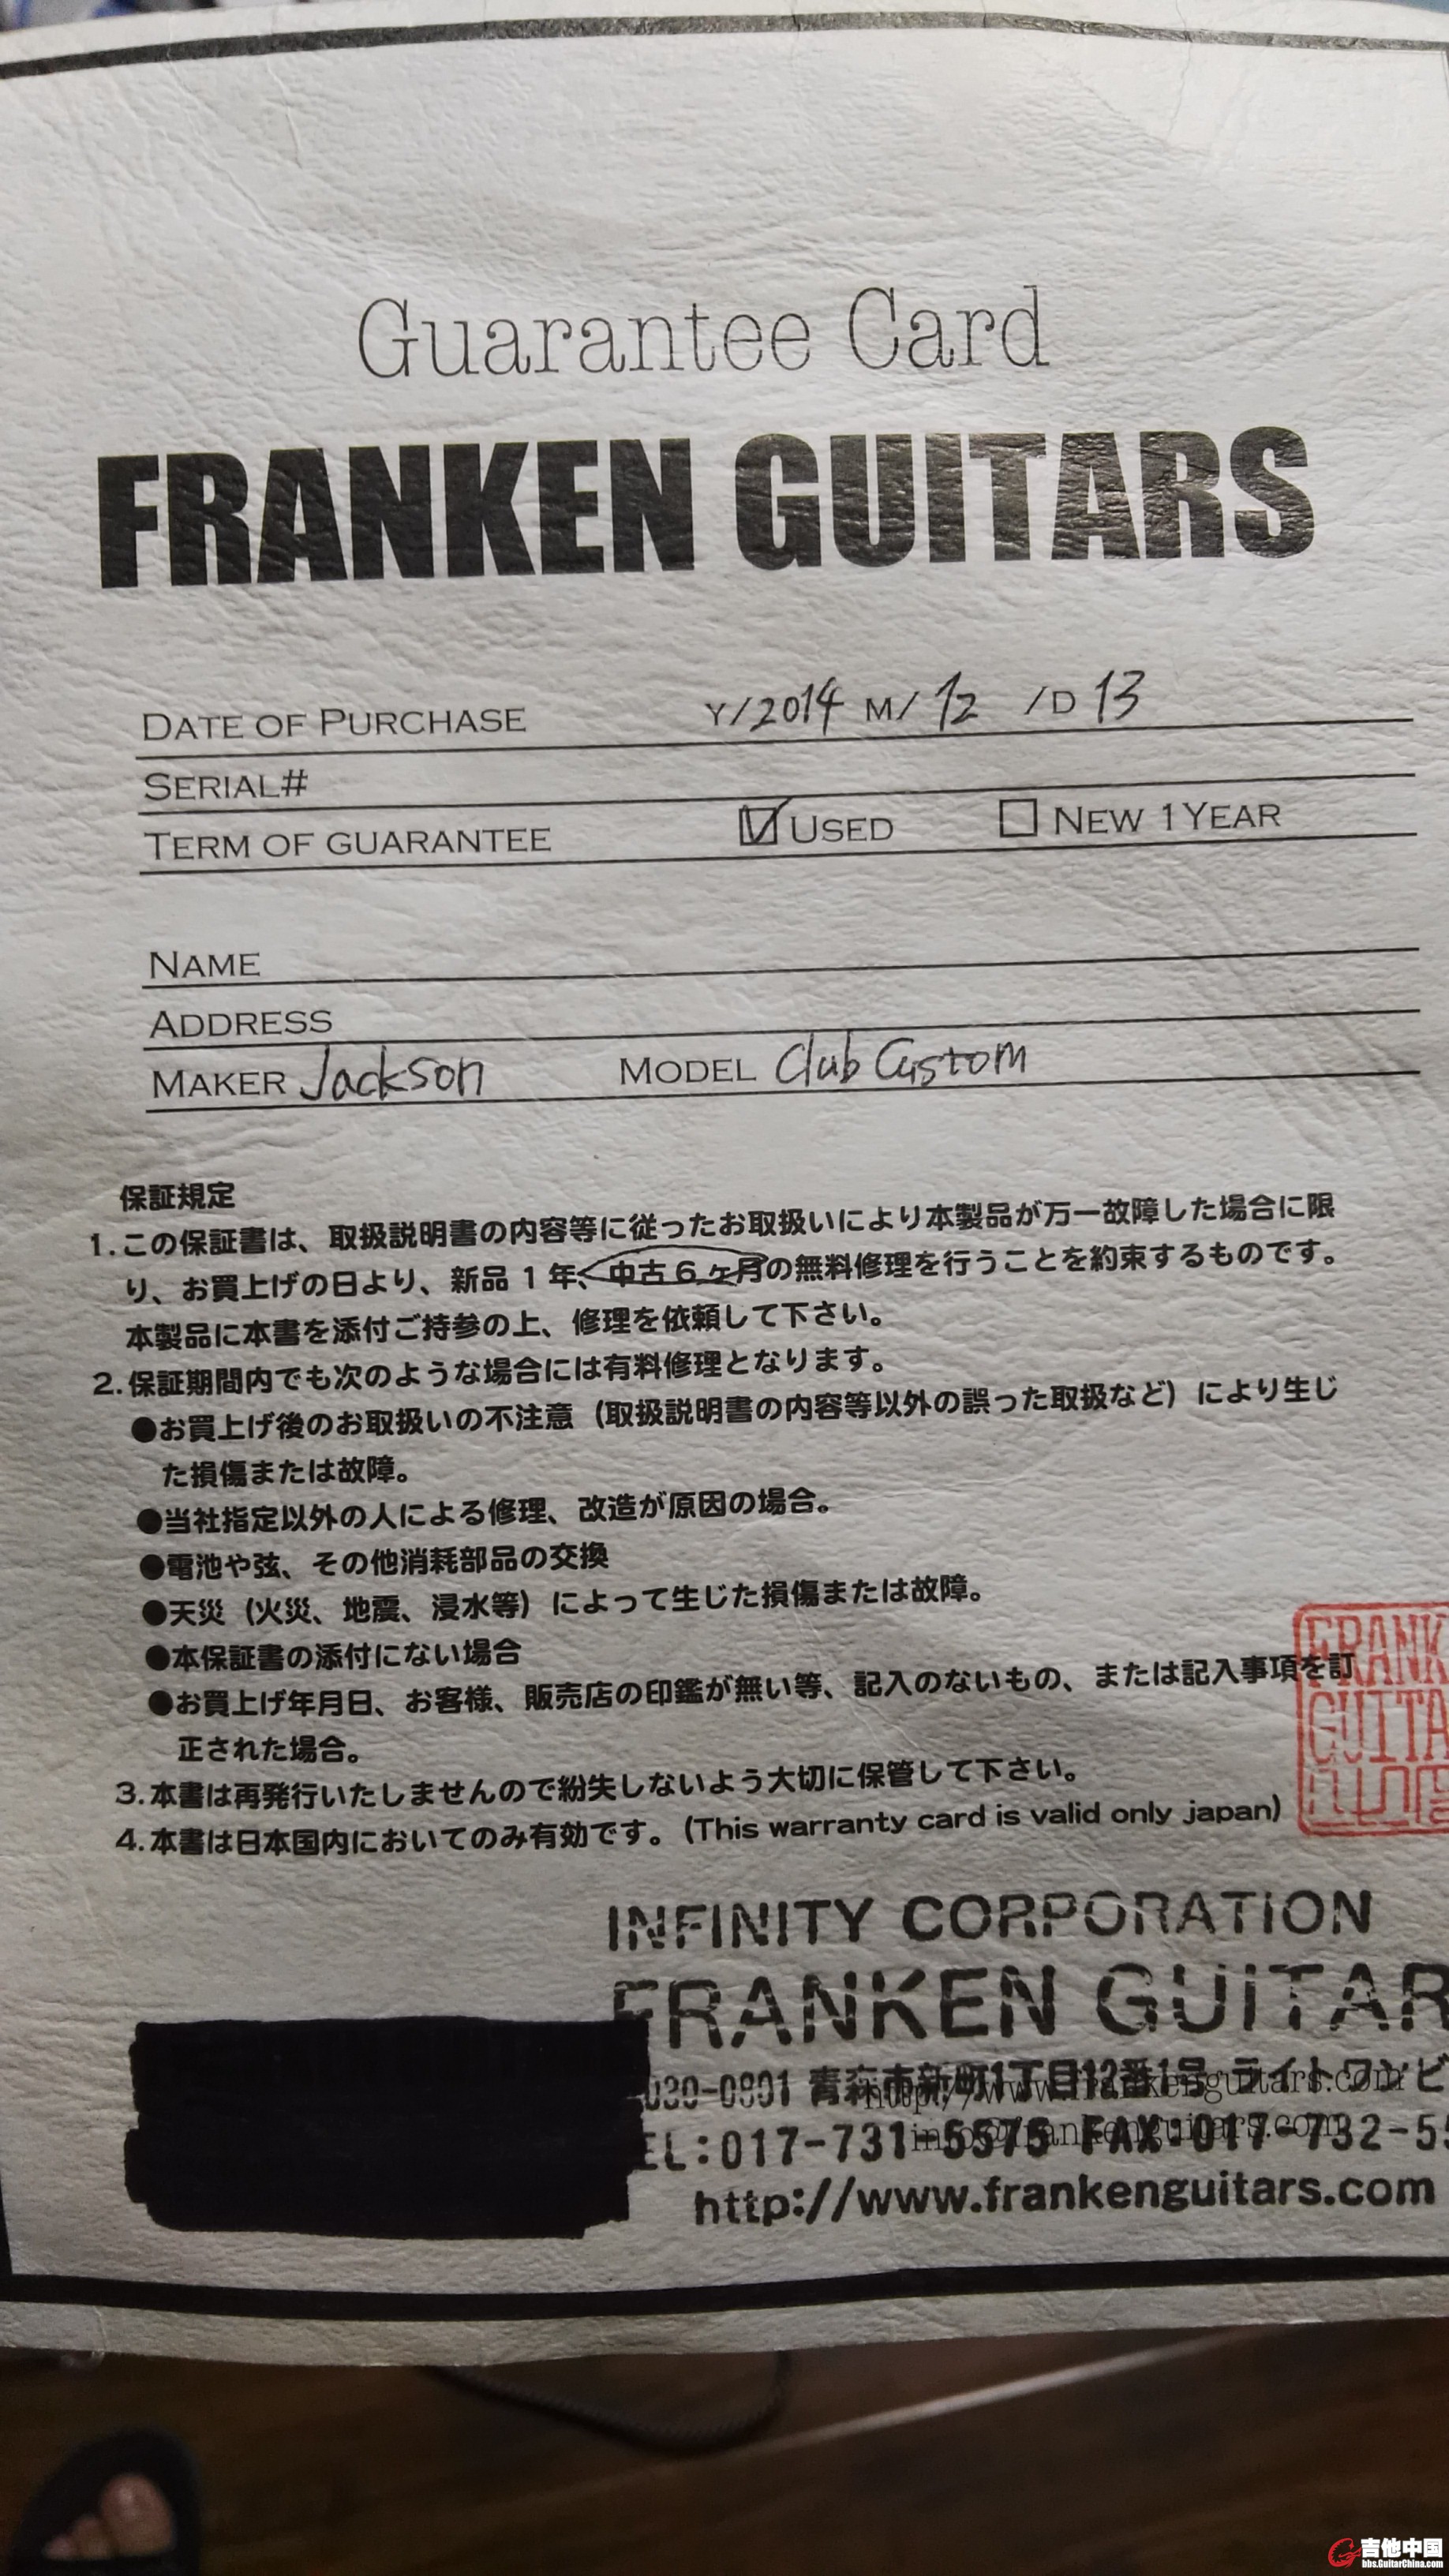 Guarantee Card
FRANKEN GUITARS
DATE OF PURCHASE Y/2014 M/12 /D 13
SERIAL#
TERM OF GUARANTEE ☑ USED ☐ NEW 1YEAR
NAME
ADDRESS
MAKER Jackson MODEL Club Custom
保証規定
1.この保証書は、取扱説明書の内容等に従ったお取扱いにより本製品が万一故障した場合に限
り、お買上げの日より、新品1年、中古6ヶ月の無料修理を行うことを約束するものです。
本製品に本書を添付ご持参の上、修理を依頼して下さい。
2.保証期間内でも次のような場合には有料修理となります。
●お買上げ後のお取扱いの不注意（取扱説明書の内容等以外の誤った取扱など）により生じ
た損傷または故障。
●当社指定以外の人による修理、改造が原因の場合。
●電池や弦、その他消耗部品の交換
●天災（火災、地震、浸水等）によって生じた損傷または故障。
●本保証書の添付にない場合
●お買上げ年月日、お客様、販売店の印鑑が無い等、記入のないもの、または記入事項を訂
正された場合。
3.本書は再発行いたしませんので紛失しないよう大切に保管して下さい。
4.本書は日本国内においてのみ有効です。(This warranty card is valid only japan)
FRANK
GUITA
INFINITY CORPORATION
FRANKEN GUITAR
030-0801 青森市新町1丁目12番1号 ライトワンビ
http://www.frankenguitars.com
EL:017-731-5575 FAX:017-732-55
info@frankenguitars.com
http://www.frankenguitars.com
吉他中国
bbs.GuitarChina.com